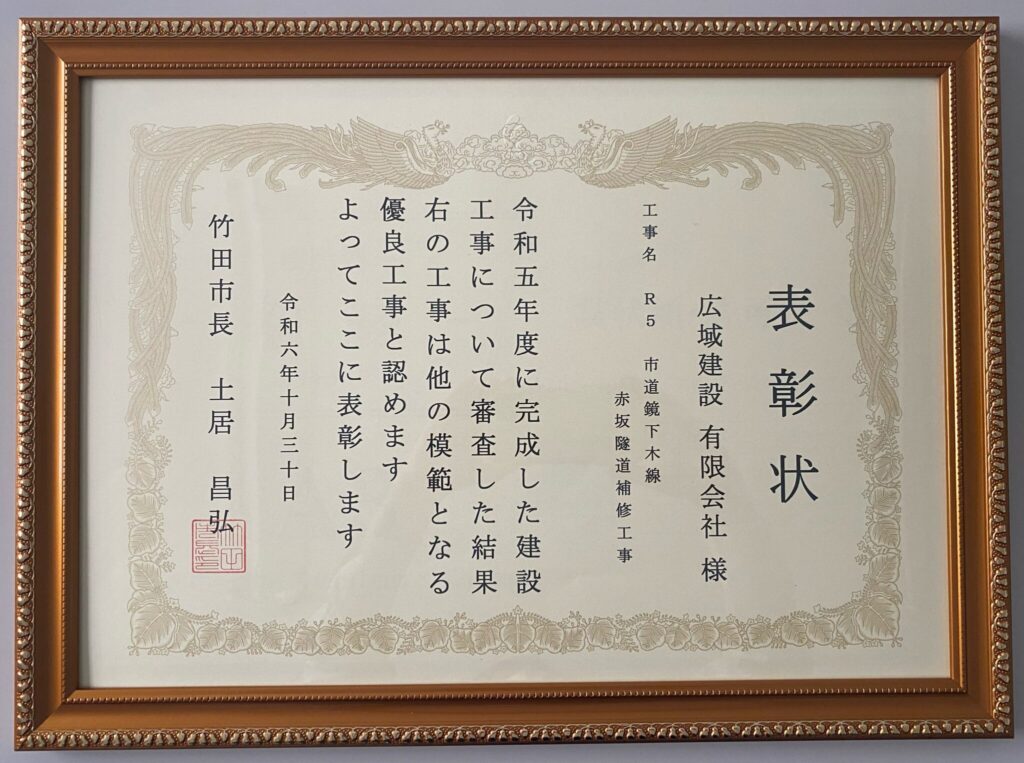 表彰状
広域建設 有限会社 様
工事名 R5 市道鏡下木線
赤坂隧道補修工事
令和五年度に完成した建設
工事について審査した結果
右の工事は他の模範となる
優良工事と認めます
よってここに表彰します
令和六年十月三十日
竹田市長 土居 昌弘